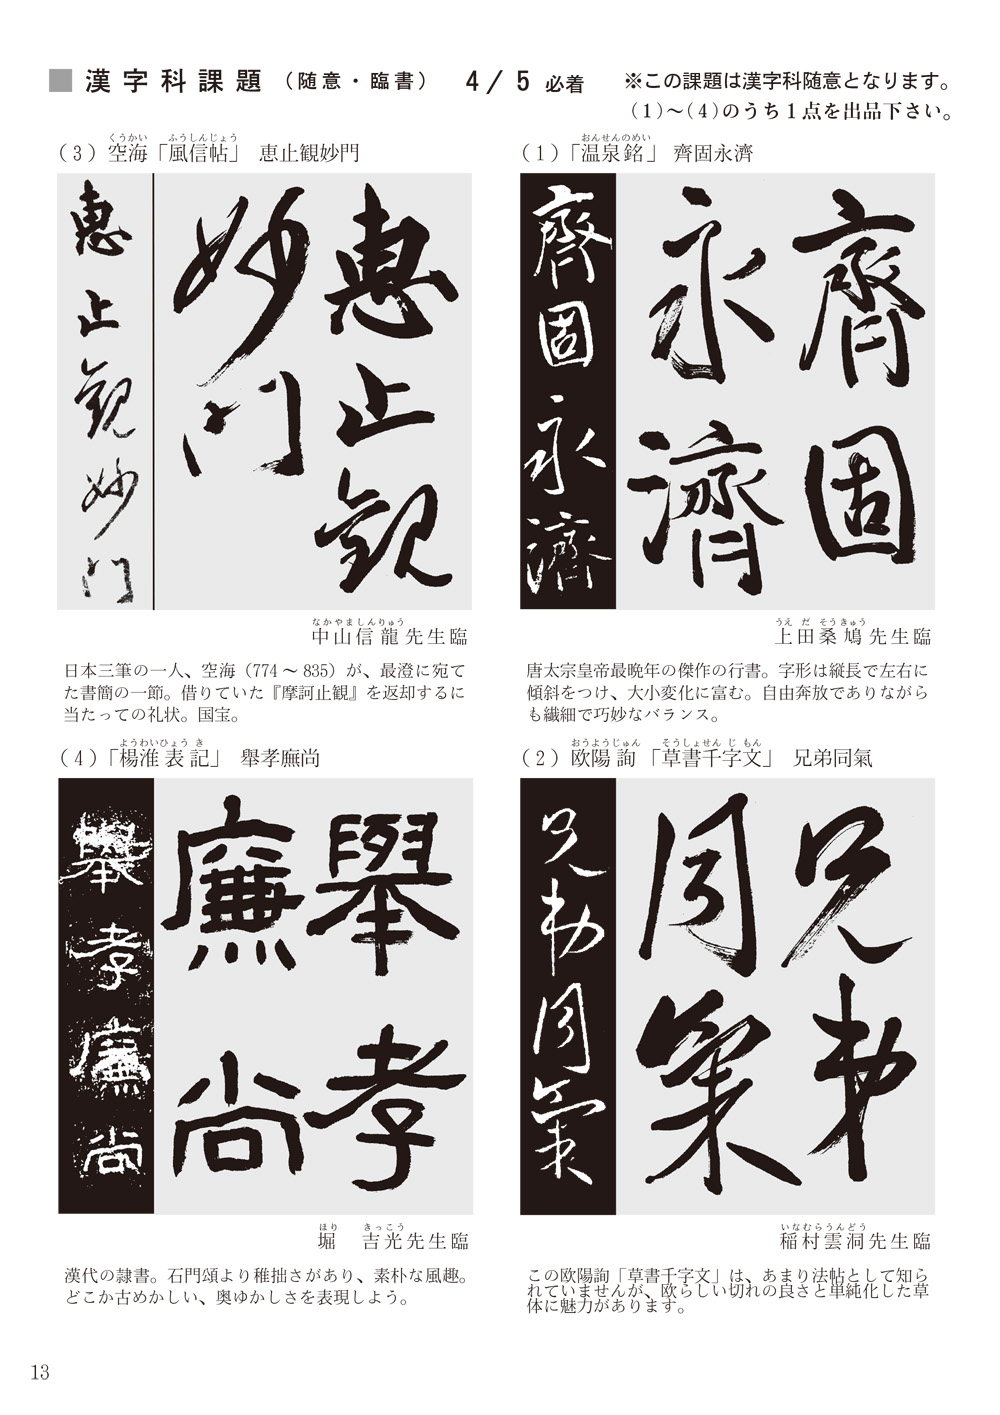 ■ 漢字科課題（随意・臨書） 4/5 必着 ※この課題は漢字科随意となります。
（1）～（4）のうち１点を出品下さい。
おんせんのめい
（1）「温泉銘」 齊固永濟
齊固永濟
齊固
永濟
うえだ そうきゅう
上田桑鳩先生臨
唐太宗皇帝最晩年の傑作の行書。字形は縦長で左右に
傾斜をつけ、大小変化に富む。自由奔放でありながら
も繊細で巧妙なバランス。
おうようじゅん そうしょせんじもん
（2）欧陽詢「草書千字文」 兄弟同氣
兄弟同氣
兄弟
同氣
いなむらうんどう
稲村雲洞先生臨
この欧陽詢「草書千字文」は、あまり法帖として知ら
れていませんが、欧らしい切れの良さと単純化した草
体に魅力があります。
くうかい ふうしんじょう
（3）空海「風信帖」 恵止観妙門
恵止観妙門
恵止観
妙門
なかやましんりゅう
中山信龍先生臨
日本三筆の一人、空海（774～835）が、最澄に宛て
た書簡の一節。借りていた『摩訶止観』を返却するに
当たっての礼状。国宝。
ようわいひょうき
（4）「楊淮表記」 舉孝廡尚
舉孝廉尚
舉孝
廉尚
ほり きっこう
堀 吉光先生臨
漢代の隷書。石門頌より稚拙さがあり、素朴な風趣。
どこか古めかしい、奥ゆかしさを表現しよう。
13